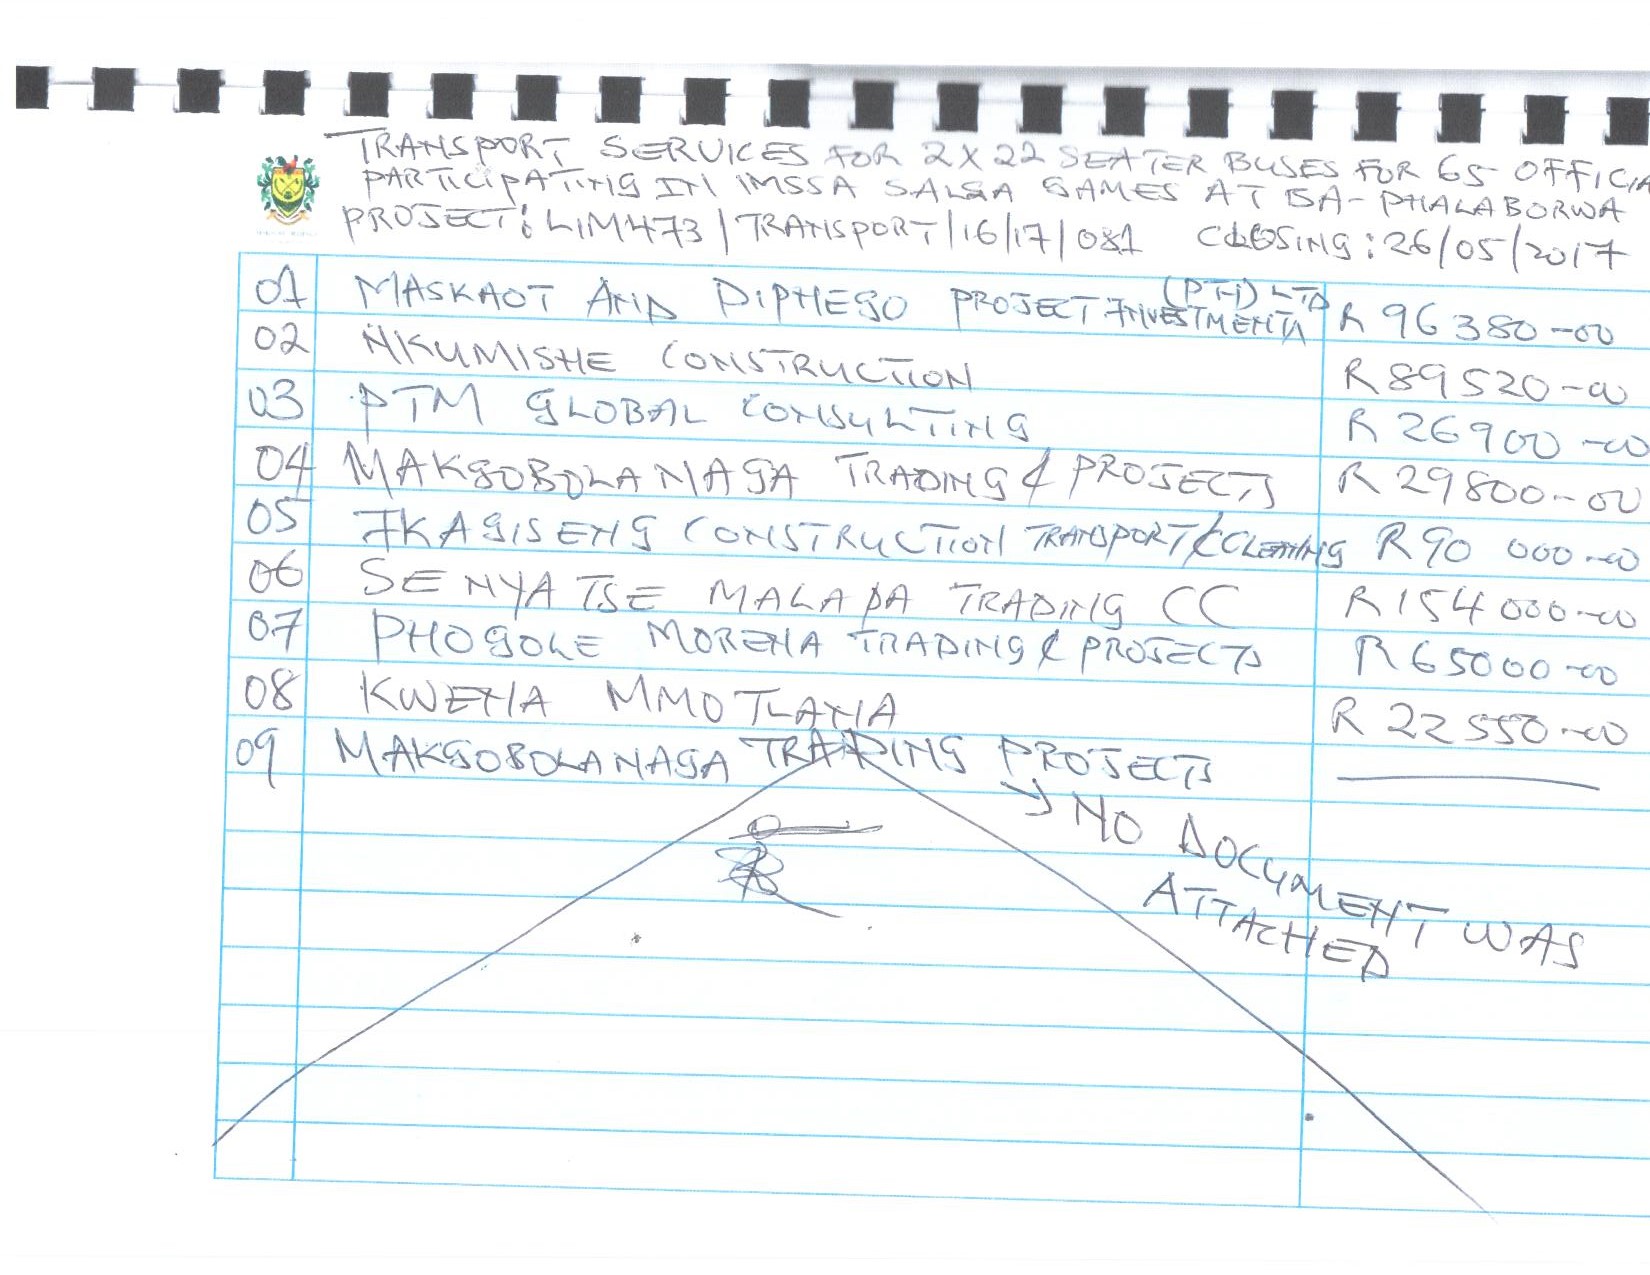 TRANSPORT SERVICES FOR 2X22 SEATER BUSES FOR 65 OFFICIA
PARTICIPATING IN IMSSA SALGA GAMES AT BA-PHALABORWA
PROJECT: LIM473/TRANSPORT/16/17/081 CLOSING: 26/05/2017
01 MASKAOT AND DIPHEGO PROJECT INVESTMENTA (PTY) LTD R 96 380-00
02 NKUMISHE CONSTRUCTION R 89520-00
03 PTM GLOBAL CONSULTING R 26900-00
04 MAKGOBOLANAGA TRADING & PROJECTS R 29800-00
05 IKAGISENG CONSTRUCTION TRANSPORT/&CLEANING R90 000-00
06 SENYATSE MALAPA TRADING CC R154 000-00
07 PHOGOLE MORENA TRADING & PROJECTS R65000-00
08 KWENA MMOTLANA R 22 550-00
09 MAKGOBOLANAGA TRADING PROJECTS
NO DOCUMENT WAS
ATTACHED